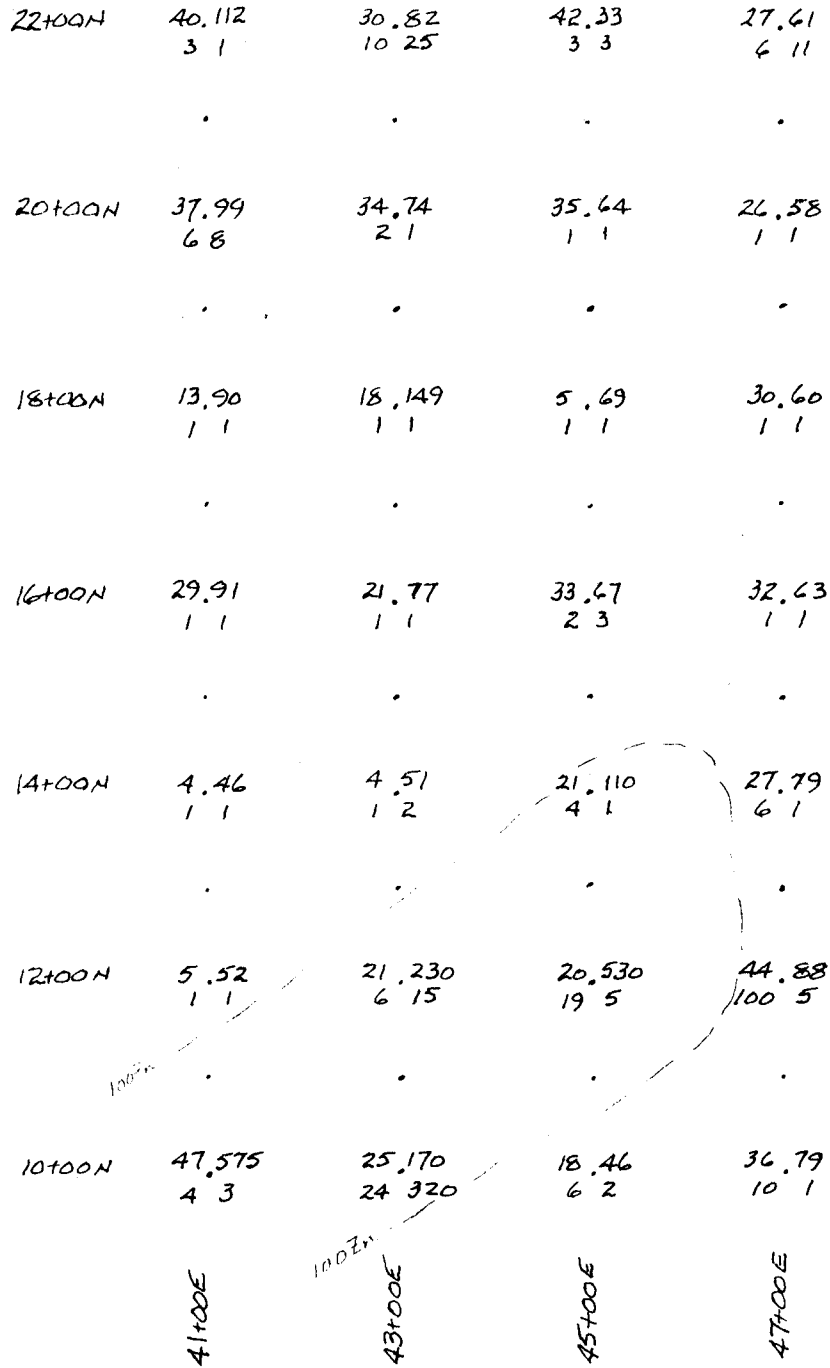 22+00N 40.112 30.82 42.33 27.61
3 1 10 25 3 3 6 11
20+00N 37.99 34.74 35.64 26.58
6 8 2 1 1 1 1 1
18+00N 13.90 18.149 5.69 30.60
1 1 1 1 1 1 1 1
16+00N 29.91 21.77 33.67 32.63
1 1 1 1 2 3 1 1
14+00N 4.46 4.51 21.110 27.79
1 1 1 2 4 1 6 1
12+00N 5.52 21.230 20.530 44.88
1 1 6 15 19 5 100 5
100Zn
10+00N 47.575 25.170 18.46 36.79
4 3 24 320 6 2 10 1
100Zn
41+00E 43+00E 45+00E 47+00E